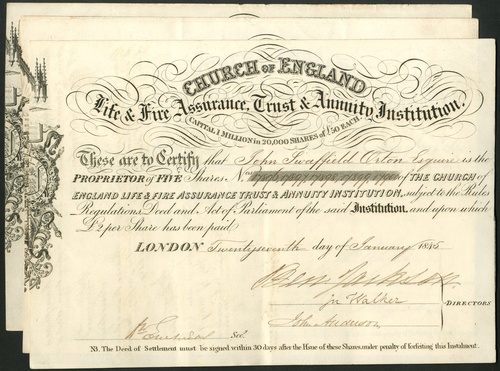 CHURCH OF ENGLAND
Life & Fire Assurance, Trust & Annuity Institution.
CAPITAL 1 MILLION in 20,000 SHARES of £50 EACH.
These are to Certify that John Swaffield Orton Esquire is the
PROPRIETOR OF FIVE Shares. Nos. of THE CHURCH OF
ENGLAND LIFE & FIRE ASSURANCE TRUST & ANNUITY INSTITUTION, subject to the Rules
Regulations, Deed and Act of Parliament of the said Institution, and upon which
£2 per Share has been paid
LONDON Twentyseventh day of January 1845
Jn Walker
DIRECTORS
John Anderson
Sec.
NB. The Deed of Settlement must be signed within 30 days after the Issue of these Shares, under penalty of forfeiting this Instalment.